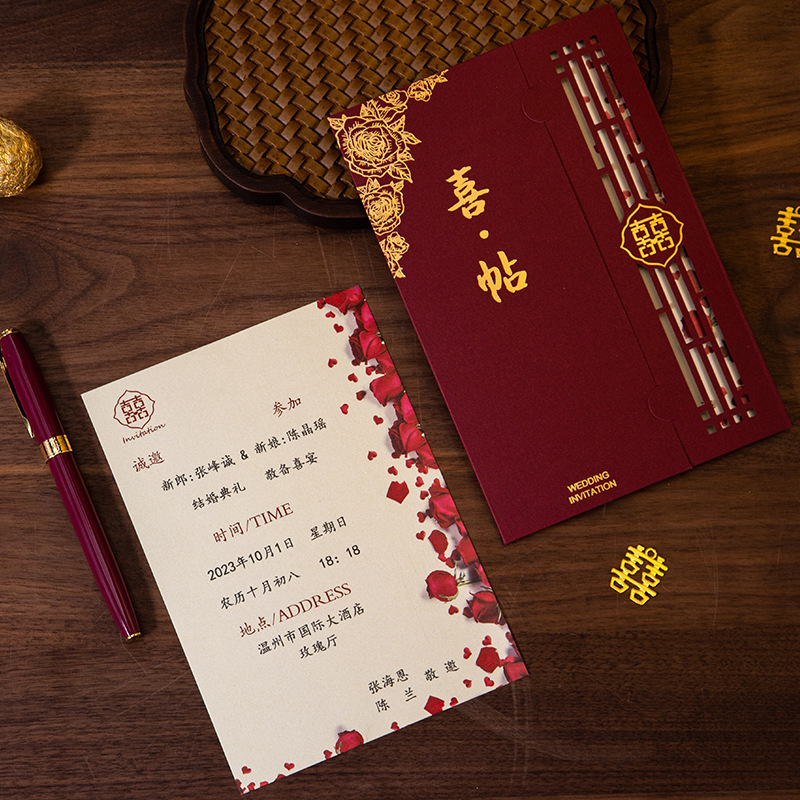 喜·帖
WEDDING
INVITATION
囍
囍
Invitation
参加
诚邀
新郎:张峰诚 & 新娘:陈晶瑶
结婚典礼 敬备喜宴
时间/TIME
2023年10月1日 星期日
农历十月初八 18：18
地点/ADDRESS
温州市国际大酒店
玫瑰厅
张海恩 敬 邀
陈 兰
囍
囍